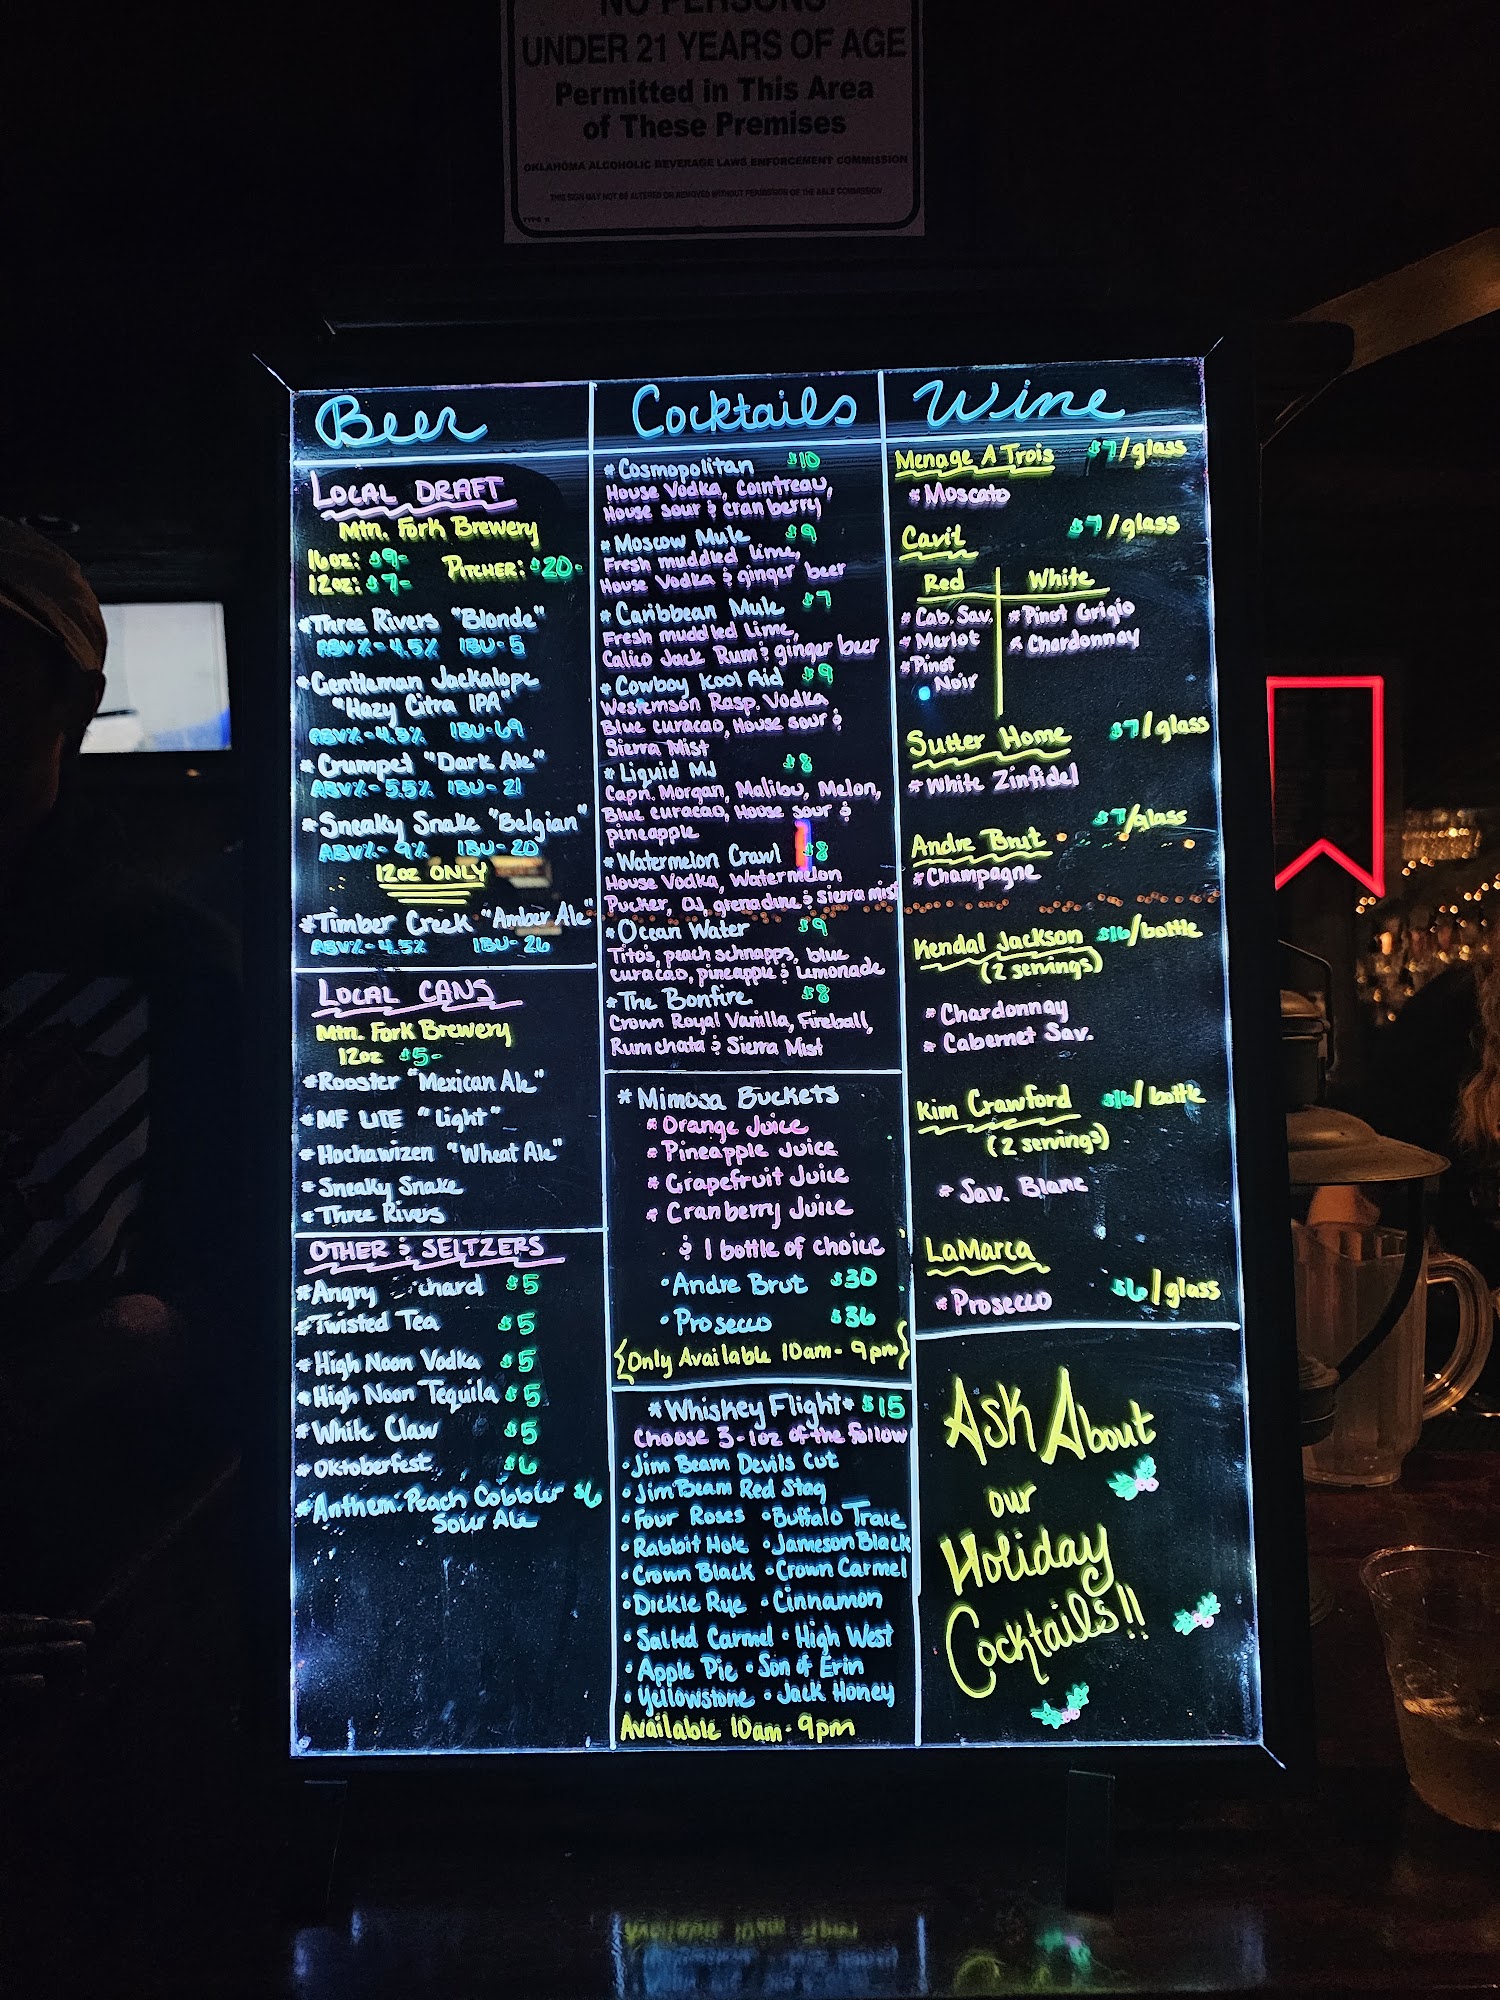 NO PERSONS
UNDER 21 YEARS OF AGE
Permitted in This Area
of These Premises
OKLAHOMA ALCOHOLIC BEVERAGE LAWS ENFORCEMENT COMMISSION
THIS SIGN MAY NOT BE ALTERED OR REMOVED WITHOUT PERMISSION OF THE ABLE COMMISSION
Beer
LOCAL DRAFT
Mtn. Fork Brewery
16oz: $9-
12oz: $7-
PITCHER: $20-
*Three Rivers "Blonde"
ABV%-4.5% IBU-5
*Gentleman Jackalope
"Hazy Citra IPA"
ABV%-4.5% IBU-69
*Crumpet "Dark Ale"
ABV%-5.5% IBU-21
*Sneaky Snake "Belgian"
ABV%-9% IBU-20
12oz ONLY
*Timber Creek "Amber Ale"
ABV%-4.5% IBU-26
LOCAL CANS
Mtn. Fork Brewery
12oz $5-
*Rooster "Mexican Ale"
*MF LITE "Light"
*Hochawizen "Wheat Ale"
*Sneaky Snake
*Three Rivers
OTHER & SELTZERS
*Angry chard $5
*Twisted Tea $5
*High Noon Vodka $5
*High Noon Tequila $5
*White Claw $5
*Oktoberfest $6
*Anthem: Peach Cobbler $6
Sour Ale
Cocktails
*Cosmopolitan $10
House Vodka, Cointreau,
House sour & cranberry
*Moscow Mule $9
Fresh muddled lime,
House Vodka & ginger beer
*Caribbean Mule $7
Fresh muddled Lime,
Calico Jack Rum & ginger beer
*Cowboy Kool Aid $9
Westernson Rasp. Vodka
Blue curacao, House sour &
Sierra Mist
*Liquid MJ $8
Capn. Morgan, Malibu, Melon,
Blue curacao, House sour &
pineapple
*Watermelon Crawl $8
House Vodka, Watermelon
Pucker, OJ, grenadine & sierra mist
*Ocean Water $9
Tito's, peach schnapps, blue
curacao, pineapple & Lemonade
*The Bonfire $8
Crown Royal Vanilla, Fireball,
Rumchata & Sierra Mist
*Mimosa Buckets
*Orange Juice
*Pineapple Juice
*Grapefruit Juice
*Cranberry Juice
& 1 bottle of choice
•Andre Brut $30
•Prosecco $36
{Only Available 10am-9pm}
*Whiskey Flight* $15
Choose 3-1oz of the follow
•Jim Beam Devils Cut
•Jim Beam Red Stag
•Four Roses •Buffalo Trace
•Rabbit Hole •Jameson Black
•Crown Black •Crown Carmel
•Dickle Rye •Cinnamon
•Salted Carmel •High West
•Apple Pie •Son of Erin
•Yellowstone •Jack Honey
Available 10am-9pm
Wine
Menage A Trois $7/glass
*Moscato
Cavit $7/glass
Red White
*Cab. Sav. *Pinot Grigio
*Merlot *Chardonnay
*Pinot
Noir
Sutter Home $7/glass
*White Zinfidel
Andre Brut $7/glass
*Champagne
Kendal Jackson $16/bottle
(2 servings)
*Chardonnay
*Cabernet Sav.
Kim Crawford $16/bottle
(2 servings)
*Sav. Blanc
LaMarca
*Prosecco $6/glass
Ask About
our
Holiday
Cocktails!!